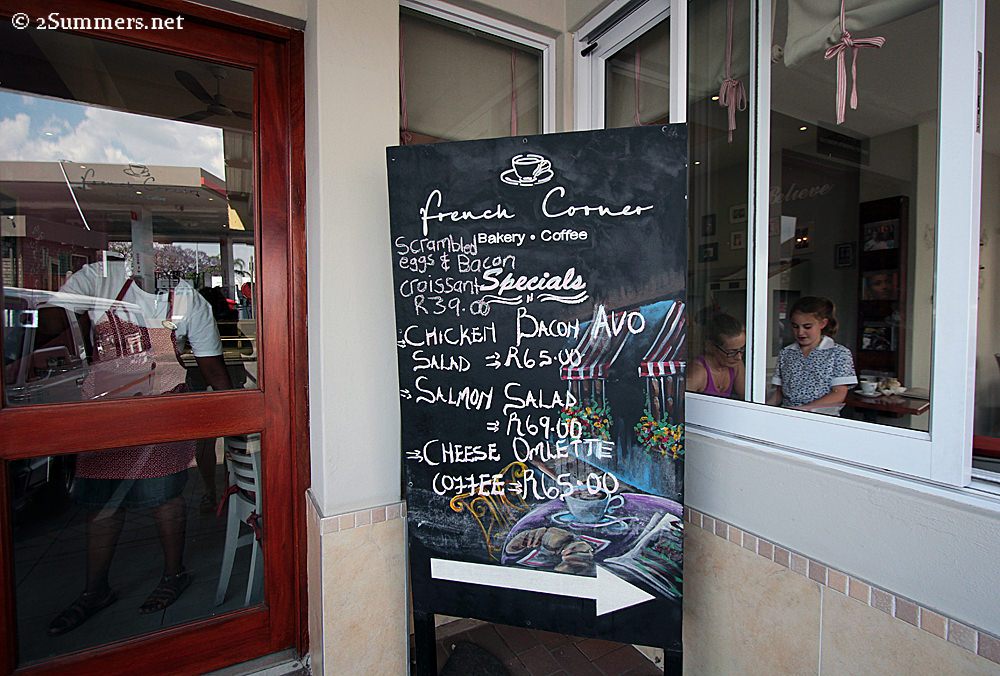 © 2Summers.net
french Corner
Bakery • Coffee
Scrambled
eggs & Bacon
croissant
R39.00
Specials
⇒CHICKEN BACON AVO
SALAD ⇒R65.00
⇒SALMON SALAD
⇒R69.00
⇒CHEESE OMLETTE
COFFEE⇒R65.00
Believe